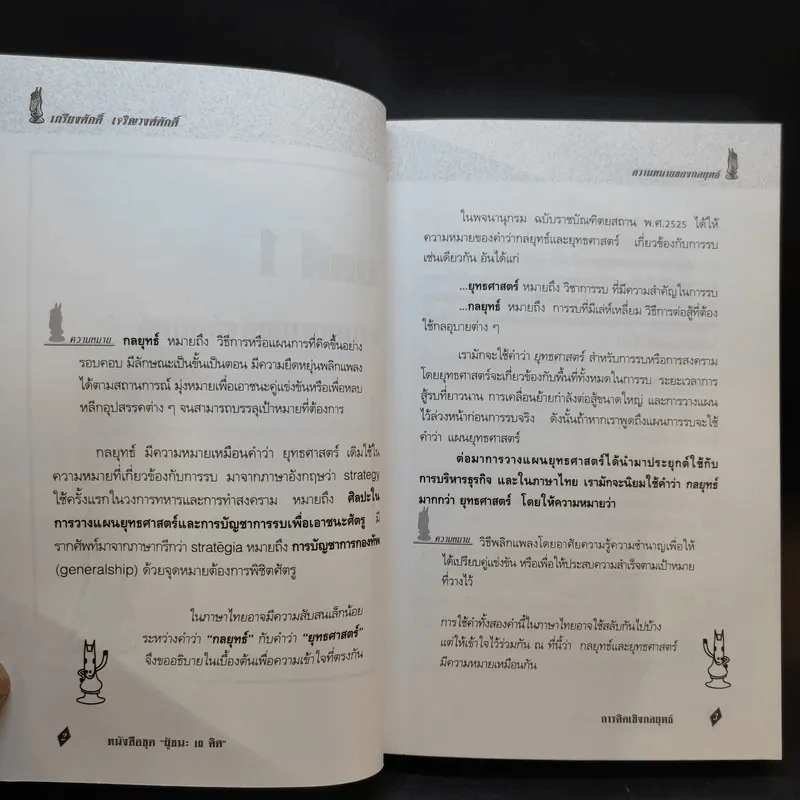 เกรียงศักดิ์ เจริญวงศ์ศักดิ์
ความหมาย กลยุทธ์ หมายถึง วิธีการหรือแผนการที่คิดขึ้นอย่าง
รอบคอบ มีลักษณะเป็นขั้นเป็นตอน มีความยืดหยุ่นพลิกแพลง
ได้ตามสถานการณ์ มุ่งหมายเพื่อเอาชนะคู่แข่งขันหรือเพื่อหลบ
หลีกอุปสรรคต่าง ๆ จนสามารถบรรลุเป้าหมายที่ต้องการ
กลยุทธ์ มีความหมายเหมือนคำว่า ยุทธศาสตร์ เดิมใช้ใน
ความหมายที่เกี่ยวข้องกับการรบ มาจากภาษาอังกฤษว่า strategy
ใช้ครั้งแรกในวงการทหารและการทำสงคราม หมายถึง ศิลปะใน
การวางแผนยุทธศาสตร์และการบัญชาการรบเพื่อเอาชนะศัตรู มี
รากศัพท์มาจากภาษากรีกว่า stratēgia หมายถึง การบัญชาการกองทัพ
(generalship) ด้วยจุดหมายต้องการพิชิตศัตรู
ในภาษาไทยอาจมีความสับสนเล็กน้อย
ระหว่างคำว่า "กลยุทธ์" กับคำว่า "ยุทธศาสตร์"
จึงขออธิบายในเบื้องต้นเพื่อความเข้าใจที่ตรงกัน
2 หนังสือชุด "ผู้ชนะ 10 คิด"
ความหมายของกลยุทธ์
ในพจนานุกรม ฉบับราชบัณฑิตยสถาน พ.ศ.2525 ได้ให้
ความหมายของคำว่ากลยุทธ์และยุทธศาสตร์ เกี่ยวข้องกับการรบ
เช่นเดียวกัน อันได้แก่
...ยุทธศาสตร์ หมายถึง วิชาการรบ ที่มีความสำคัญในการรบ
...กลยุทธ์ หมายถึง การรบที่มีเล่ห์เหลี่ยม วิธีการต่อสู้ที่ต้อง
ใช้กลอุบายต่าง ๆ
เรามักจะใช้คำว่า ยุทธศาสตร์ สำหรับการรบหรือการสงคราม
โดยยุทธศาสตร์จะเกี่ยวข้องกับพื้นที่ทั้งหมดในการรบ ระยะเวลาการ
สู้รบที่ยาวนาน การเคลื่อนย้ายกำลังต่อสู้ขนาดใหญ่ และการวางแผน
ไว้ล่วงหน้าก่อนการรบจริง ดังนั้นถ้าหากเราพูดถึงแผนการรบจะใช้
คำว่า แผนยุทธศาสตร์
ต่อมาการวางแผนยุทธศาสตร์ได้นำมาประยุกต์ใช้กับ
การบริหารธุรกิจ และในภาษาไทย เรามักจะนิยมใช้คำว่า กลยุทธ์
มากกว่า ยุทธศาสตร์ โดยให้ความหมายว่า
ความหมาย วิธีพลิกแพลงโดยอาศัยความรู้ความชำนาญเพื่อให้
ได้เปรียบคู่แข่งขัน หรือเพื่อให้ประสบความสำเร็จตามเป้าหมาย
ที่วางไว้
การใช้คำทั้งสองคำนี้ในภาษาไทยอาจใช้สลับกันไปบ้าง
แต่ให้เข้าใจไว้ร่วมกัน ณ ที่นี้ว่า กลยุทธ์และยุทธศาสตร์
มีความหมายเหมือนกัน
การคิดเชิงกลยุทธ์ 3